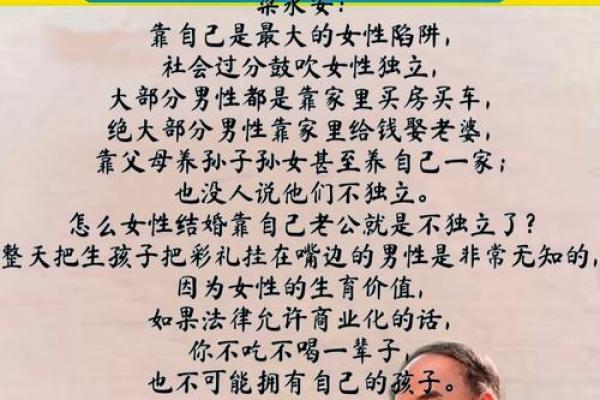 梁永安：
靠自己是最大的女性陷阱，
社会过分鼓吹女性独立，
大部分男性都是靠家里买房买车，
绝大部分男性靠家里给钱娶老婆，
靠父母养孙子孙女甚至养自己一家；
也没人说他们不独立。
怎么女性结婚靠自己老公就是不独立了？
整天把生孩子把彩礼挂在嘴边的男性是非常无知的，
因为女性的生育价值，
如果法律允许商业化的话，
你不吃不喝一辈子，
也不可能拥有自己的孩子。